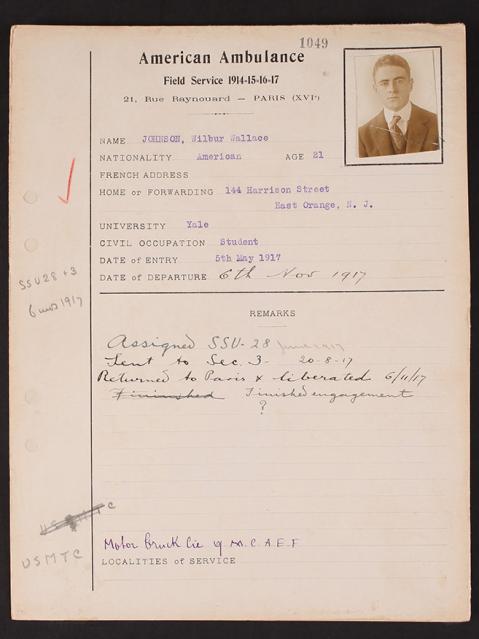 1049
American Ambulance
Field Service 1914-15-16-17
21, Rue Raynouard — PARIS (XVIe)
NAME JOHNSON, Wilbur Wallace
NATIONALITY American AGE 21
FRENCH ADDRESS
HOME or FORWARDING 144 Harrison Street
East Orange, N. J.
UNIVERSITY Yale
CIVIL OCCUPATION Student
DATE of ENTRY 5th May 1917
DATE of DEPARTURE 6th Nov 1917
SSU 28 + 3
6 mos 1917
REMARKS
Assigned SSU-28 June 1917
Sent to Sec. 3. 20-8-17
Returned to Paris & liberated 6/11/17
Finished engagement
?
USMTC
Motor Truck Cie Q.M.C. A.E.F
LOCALITIES of SERVICE